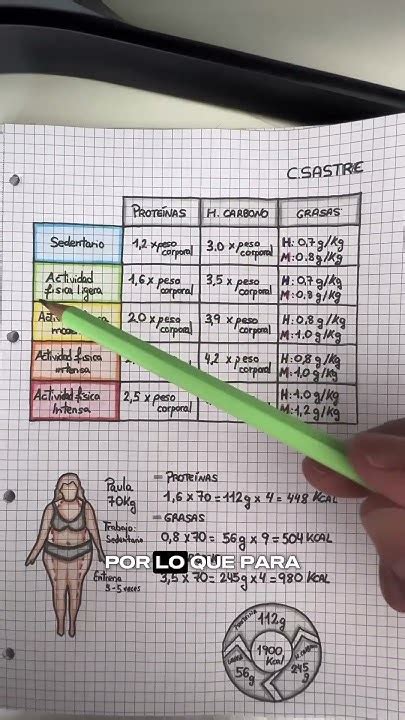 C.SASTRE
PROTEÍNAS H. CARBONO GRASAS
Sedentario 1,2 x peso corporal 3.0 x peso corporal H: 0.7g/kg M: 0.8g/kg
Actividad física ligera 1,6 x peso corporal 3,5 x peso corporal H: 0,7g/kg M: 0.8g/kg
2.0 x peso corporal 3,9 x peso corporal H: 0.8g/kg M: 1.0g/kg
Actividad física intensa 4,2 x peso corporal H: 0.8g/kg M: 1.0g/kg
Actividad física Intensa 2,5 x peso corporal H: 1.0g/kg M: 1,2g/kg
Paula
70Kg
Trabajo:
Sedentario
Entrena
3-5 veces
- PROTEÍNAS
1,6 x 70 = 112g x 4 = 448 KCAL
- GRASAS
0,8 x 70 = 56g x 9 = 504 KCAL
POR LO QUE PARA
3,5 x 70 = 245g x 4 = 980 KCAL
PROTEÍNA
112g
1900
Kcal
GRASA
56g
H. CARBONO
245
g